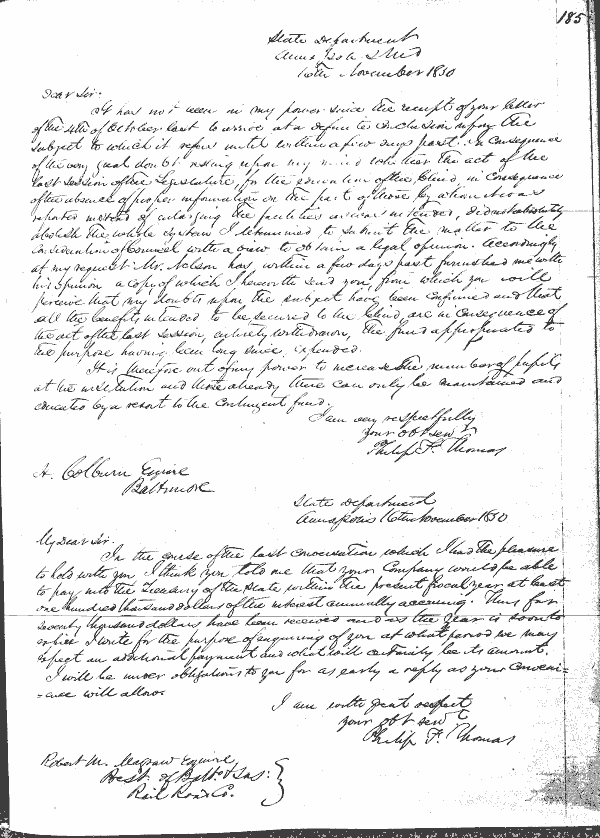 185
State Department
Annapolis Md
16th November 1850
Dear Sir:
It has not been in my power since the receipt of your letter
of the 4th of October last to arrive at a definite conclusion upon the
subject to which it refers until within a few days past. In consequence
of the very great doubt resting upon my mind whether the act of the
last session of the Legislature, for the education of the blind, in consequence
of the absence of proper information on the part of those by whom it was
reported instead of enlarging the facilities as was intended, did not absolutely
abolish the whole system I determined, to submit the matter to the
consideration of Counsel with a view to obtain a legal opinion. Accordingly
at my request Mr. Nelson has, within a few days past furnished me with
his opinion a copy of which I herewith send you, from which you will
perceive that my doubts upon the subject have been confirmed and that
all the benefits, intended to be secured to the blind, are in consequence of
the act of the last session, entirely withdrawn, the fund appropriated to
the purpose having been long since, expended.
It is therefore out of my power to increase the number of pupils
at the institution and those already there can only be maintained and
educated by a resort to the contingent fund.
I am very respectfully
your obt servt
Philip F. Thomas
H. Colburn Esquire
Baltimore
State Department
Annapolis 16th November 1850
My dear Sir.
In the course of the last conversation which I had the pleasure
to hold with you I think you told me that your Company would be able
to pay into the Treasury of the State within the present fiscal year at least
one hundred thousand dollars of the interest annually accruing. Thus far
seventy thousand dollars have been received and as the year is soon to
expire I write for the purpose of enquiring of you at what period we may
expect an additional payment and what will certainly be its amount.
I will be under obligations to you for as early a reply as your conveni-
-ence will allow
I am with great respect
your obt servt
Philip F. Thomas
Robert M. Magraw Esquire,
Prest. of Balto & Sus:
Rail Road Co.